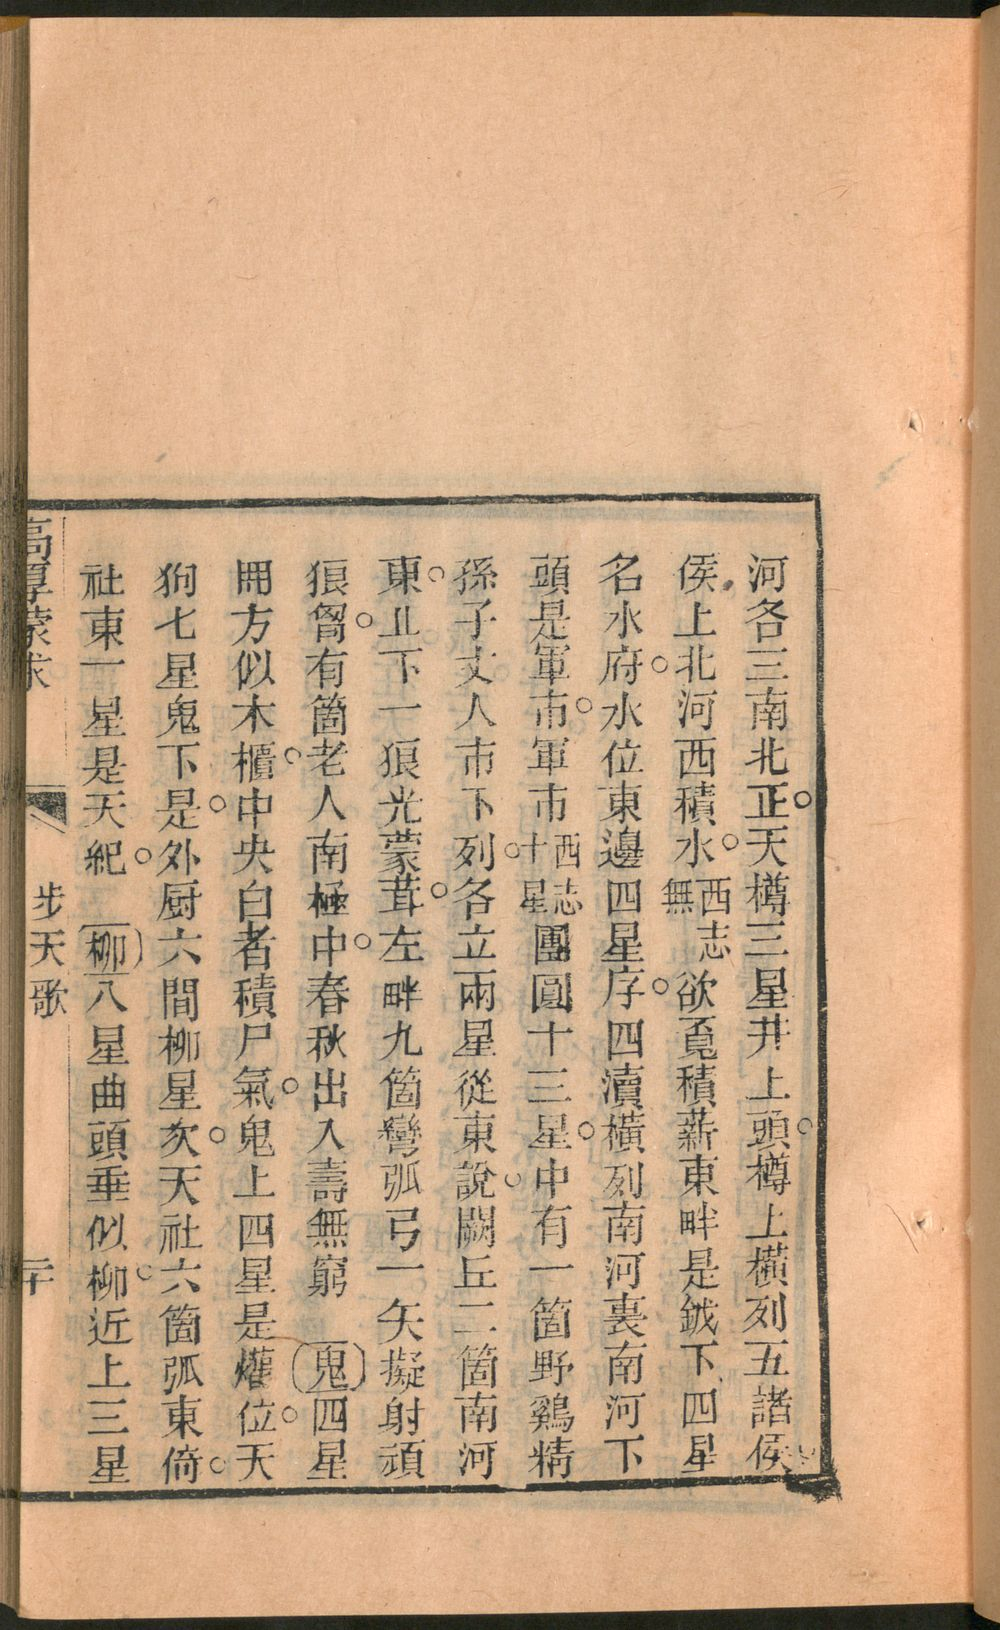 河各三南北正天樽三星井上頭樽上橫列五諸侯
侯上北河西積水西志無欲覔積薪東畔是鉞下四星
名水府水位東邊四星序四瀆橫列南河裏南河下
頭是軍市軍市西志十星團圓十三星中有一箇野鷄精
孫子丈人市下列各立兩星從東說闕丘二箇南河
東丘下一狼光蒙茸左畔九箇彎弧弓一矢擬射頑
狼胷有箇老人南極中春秋出入壽無窮　鬼四星
冊方似木櫃中央白者積尸氣鬼上四星是爟位天
狗七星鬼下是外厨六間柳星次天社六箇弧東倚
社東一星是天紀　柳八星曲頭垂似柳近上三星
高厚蒙求　步天歌　二十